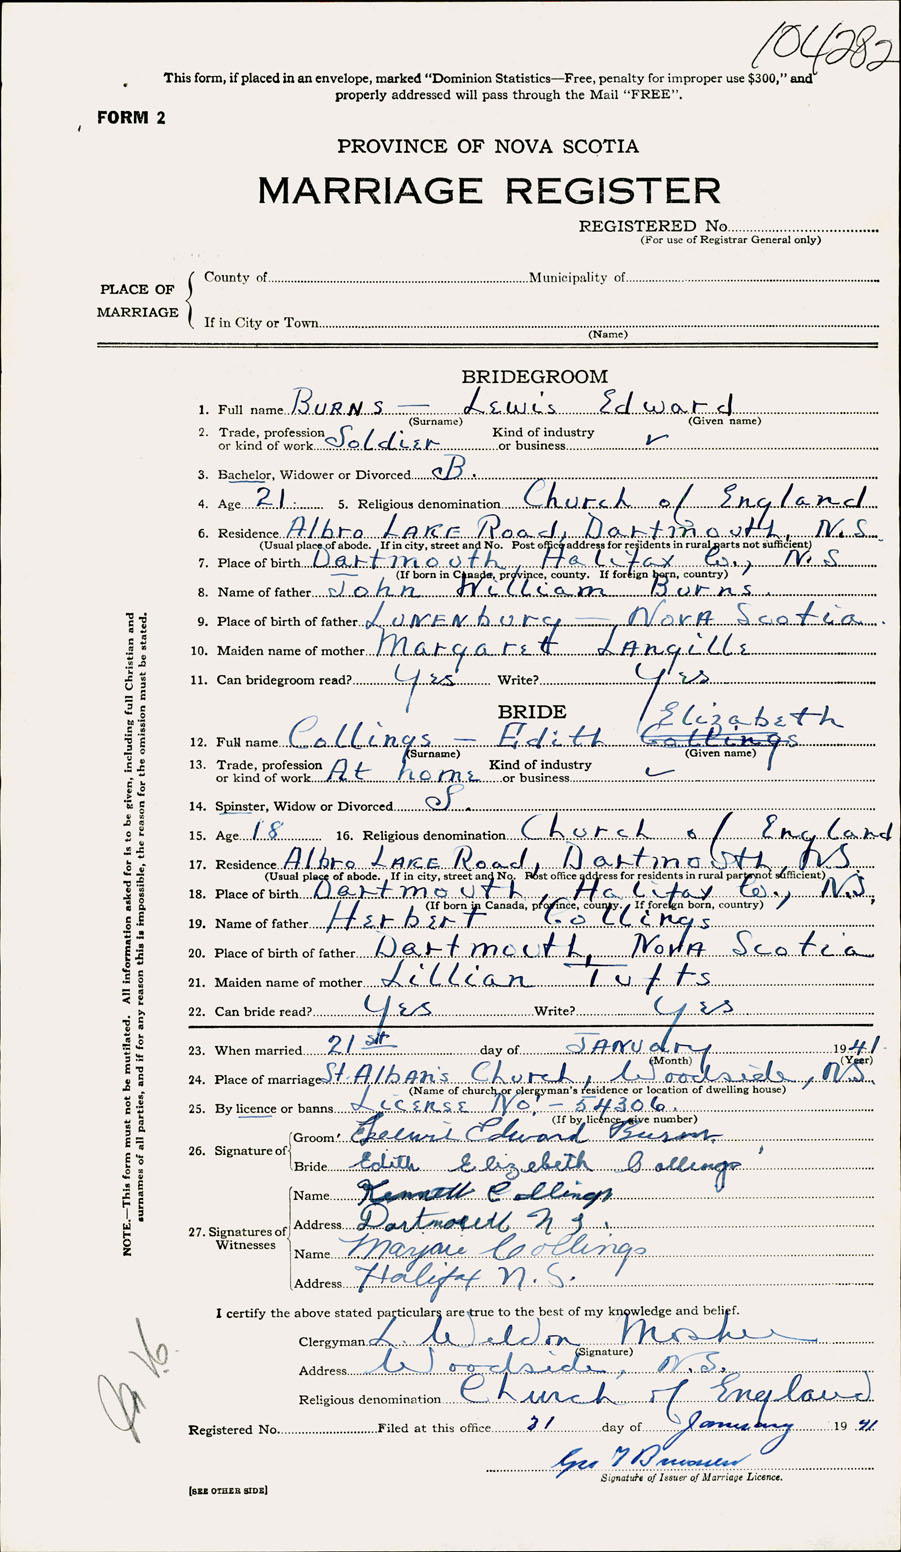 104282
This form, if placed in an envelope, marked “Dominion Statistics—Free, penalty for improper use $300,” and
properly addressed will pass through the Mail “FREE”.
FORM 2
PROVINCE OF NOVA SCOTIA
MARRIAGE REGISTER
REGISTERED No.
(For use of Registrar General only)
PLACE OF MARRIAGE
County of Municipality of
If in City or Town
(Name)
NOTE.—This form must not be mutilated. All information asked for is to be given, including full Christian and
surnames of all parties, and if for any reason this is impossible, the reason for the omission must be stated.
BRIDEGROOM
1. Full name BURNS — Lewis Edward
(Surname) (Given name)
2. Trade, profession or kind of work Soldier Kind of industry or business ✓
3. Bachelor, Widower or Divorced B.
4. Age 21 5. Religious denomination Church of England
6. Residence Albro LAKE Road, Dartmouth, N.S.
(Usual place of abode. If in city, street and No. Post office address for residents in rural parts not sufficient)
7. Place of birth Dartmouth, Halifax Co., N.S
(If born in Canada, province, county. If foreign born, country)
8. Name of father John William Burns.
9. Place of birth of father LUNENburg — NOVA Scotia.
10. Maiden name of mother Margaret LAngille
11. Can bridegroom read? Yes Write? Yes
BRIDE
Elizabeth
12. Full name Collings — Edith Collings
(Surname) (Given name)
13. Trade, profession or kind of work At home Kind of industry or business ✓
14. Spinster, Widow or Divorced S.
15. Age 18 16. Religious denomination Church of England
17. Residence Albro LAKE Road, Dartmouth, NS
(Usual place of abode. If in city, street and No. Post office address for residents in rural parts not sufficient)
18. Place of birth Dartmouth, Halifax Co., N.S,
(If born in Canada, province, county. If foreign born, country)
19. Name of father Herbert Collings
20. Place of birth of father Dartmouth, NOVA Scotia
21. Maiden name of mother Lillian Tufts
22. Can bride read? Yes Write? Yes
23. When married 21st day of JANUARY 1941
(Month) (Year)
24. Place of marriage St. Alban's Church, Woodside, N.S
(Name of church or clergyman's residence or location of dwelling house)
25. By licence or banns License No. - 54306.
(If by licence, give number)
26. Signature of Groom Edward Burns
Bride Edith Elizebeth Collings
27. Signatures of Witnesses Name Kenneth Collings
Address Dartmouth N.S.
Name Marjorie Collings
Address Halifax N.S.
I certify the above stated particulars are true to the best of my knowledge and belief.
Clergyman L. Weldon Mosher
(Signature)
Address Woodside, N.S.
Religious denomination Church of England
Registered No. Filed at this office 21 day of January 1941
Signature of Issuer of Marriage Licence.
[SEE OTHER SIDE]